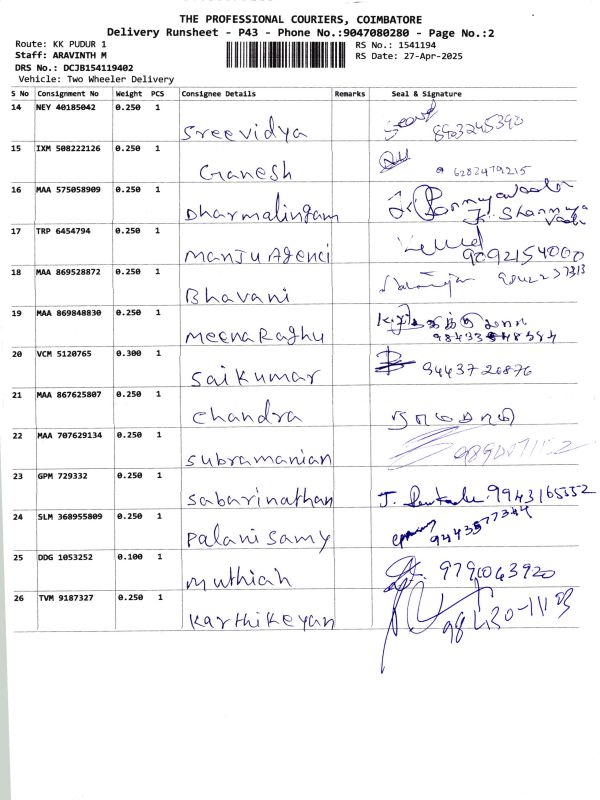 THE PROFESSIONAL COURIERS, COIMBATORE
Delivery Runsheet - P43 - Phone No.:9047080280 - Page No.:2
Route: KK PUDUR 1
RS No.: 1541194
Staff: ARAVINTH M
RS Date: 27-Apr-2025
DRS No.: DCJB154119402
Vehicle: Two Wheeler Delivery
S No Consignment No Weight PCS Consignee Details Remarks Seal & Signature
14 NEY 40185042 0.250 1
Sreevidya 8903245390
15 IXM 508222126 0.250 1
Ganesh 6282479215
16 MAA 575058909 0.250 1
Dharmalingam
17 TRP 6454794 0.250 1
Manju Agenci 9092154000
18 MAA 869528872 0.250 1
Bhavani
19 MAA 869848830 0.250 1
Meena Raghu
20 VCM 5120765 0.300 1
Saikumar 9443726876
21 MAA 867625807 0.250 1
Chandra
22 MAA 707629134 0.250 1
Subramanian
23 GPM 729332 0.250 1
Sabarinathan 9943165352
24 SLM 368955809 0.250 1
Palani Samy 9443577344
25 DDG 1053252 0.100 1
Muthiah 9791063920
26 TVM 9187327 0.250 1
Karthikeyan